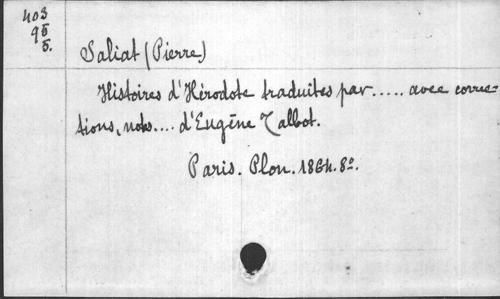 403
95
5.
Saliat (Pierre)
Histoires d'Hérodote traduites par..... avec correc-
tions, notes.... d'Eugène Talbot.
Paris. Plon. 1864. 8º.